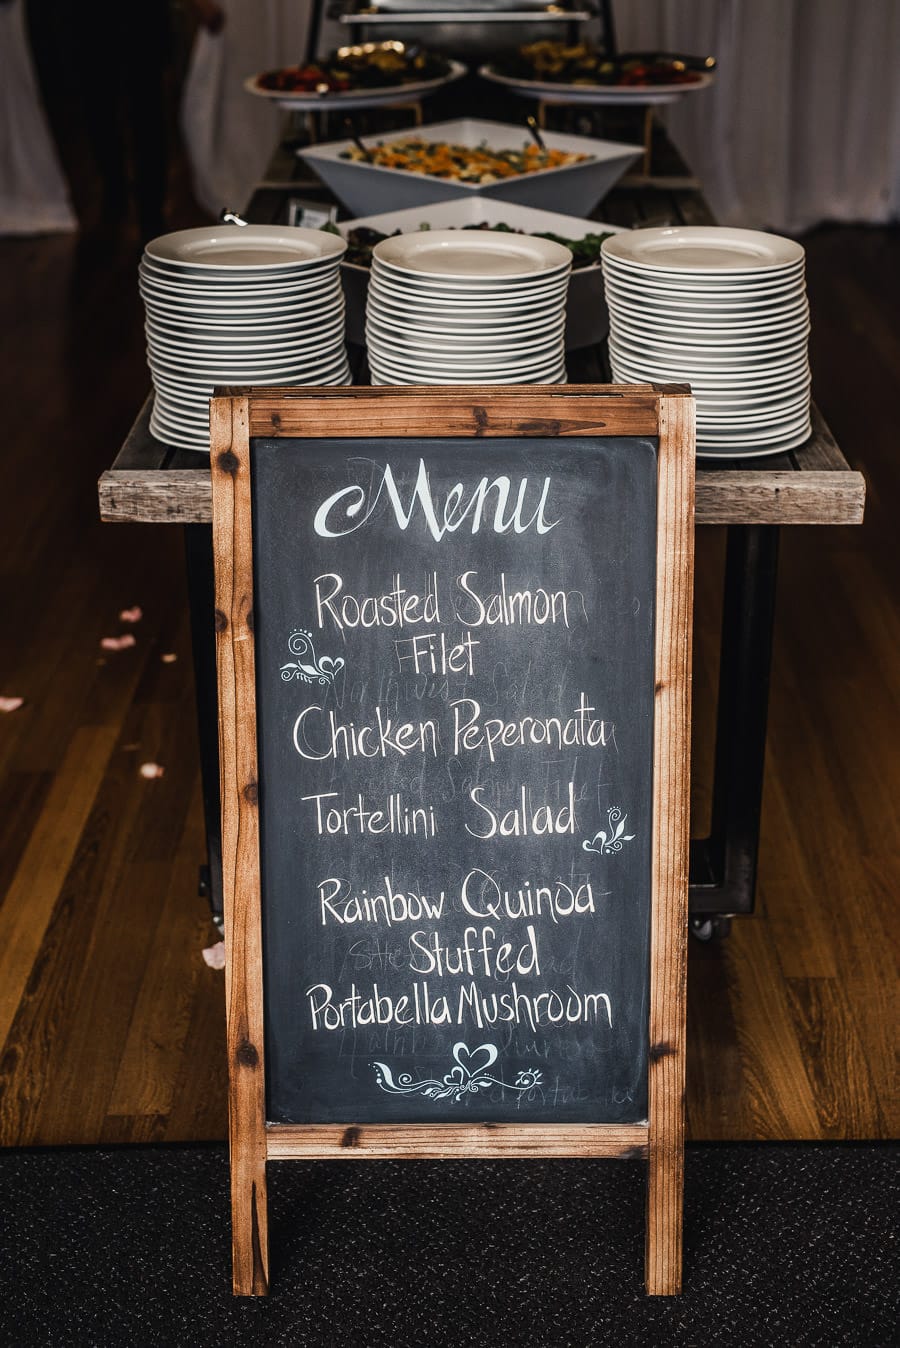 Menu
Roasted Salmon
Filet
Chicken Peperonata
Tortellini Salad
Rainbow Quinoa
Stuffed
Portabella Mushroom